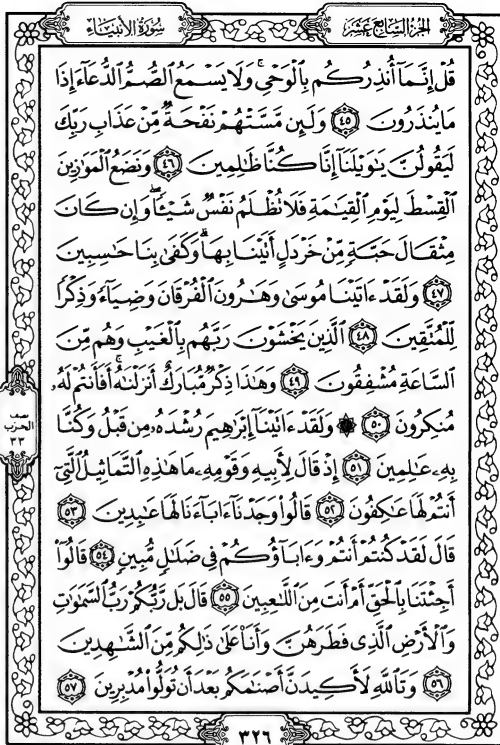 الجزء السابع عشر
سورة الأنبياء
قُلْ إِنَّمَآ أُنذِرُكُم بِالْوَحْىِ ۚ وَلَا يَسْمَعُ الصُّمُّ الدُّعَآءَ إِذَا
مَا يُنذَرُونَ ٤٥ وَلَئِن مَّسَّتْهُمْ نَفْحَةٌ مِّنْ عَذَابِ رَبِّكَ
لَيَقُولُنَّ يَٰوَيْلَنَآ إِنَّا كُنَّا ظَٰلِمِينَ ٤٦ وَنَضَعُ الْمَوَٰزِينَ
الْقِسْطَ لِيَوْمِ الْقِيَٰمَةِ فَلَا تُظْلَمُ نَفْسٌ شَيْـًٔا ۖ وَإِن كَانَ
مِثْقَالَ حَبَّةٍ مِّنْ خَرْدَلٍ أَتَيْنَا بِهَا ۗ وَكَفَىٰ بِنَا حَٰسِبِينَ
٤٧ وَلَقَدْ ءَاتَيْنَا مُوسَىٰ وَهَٰرُونَ الْفُرْقَانَ وَضِيَآءً وَذِكْرًا
لِّلْمُتَّقِينَ ٤٨ الَّذِينَ يَخْشَوْنَ رَبَّهُم بِالْغَيْبِ وَهُم مِّنَ
السَّاعَةِ مُشْفِقُونَ ٤٩ وَهَٰذَا ذِكْرٌ مُّبَارَكٌ أَنزَلْنَٰهُ ۚ أَفَأَنتُمْ لَهُۥ
مُنكِرُونَ ٥٠ ۞ وَلَقَدْ ءَاتَيْنَآ إِبْرَٰهِيمَ رُشْدَهُۥ مِن قَبْلُ وَكُنَّا
بِهِۦ عَٰلِمِينَ ٥١ إِذْ قَالَ لِأَبِيهِ وَقَوْمِهِۦ مَا هَٰذِهِ التَّمَاثِيلُ الَّتِىٓ
أَنتُمْ لَهَا عَٰكِفُونَ ٥٢ قَالُوا۟ وَجَدْنَآ ءَابَآءَنَا لَهَا عَٰبِدِينَ ٥٣
قَالَ لَقَدْ كُنتُمْ أَنتُمْ وَءَابَآؤُكُمْ فِى ضَلَٰلٍ مُّبِينٍ ٥٤ قَالُوٓا۟
أَجِئْتَنَا بِالْحَقِّ أَمْ أَنتَ مِنَ اللَّٰعِبِينَ ٥٥ قَالَ بَل رَّبُّكُمْ رَبُّ السَّمَٰوَٰتِ
وَالْأَرْضِ الَّذِى فَطَرَهُنَّ وَأَنَا۠ عَلَىٰ ذَٰلِكُم مِّنَ الشَّٰهِدِينَ
٥٦ وَتَاللَّهِ لَأَكِيدَنَّ أَصْنَٰمَكُم بَعْدَ أَن تُوَلُّوا۟ مُدْبِرِينَ ٥٧
نصف
الحزب
٣٣
٣٢٦